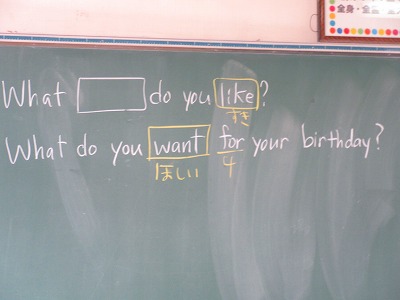 What do you like?
すき
What do you want for your birthday?
ほしい 4